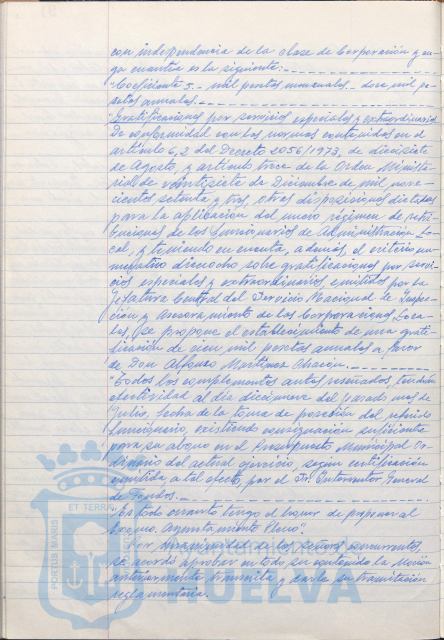 con independencia de la clase de Corporación y cu-
ya cuantía es la siguiente:
"Coeficiente 5 - mil pesetas mensuales - doce mil pe-
setas anuales.
"Gratificaciones por servicios especiales y extraordinarios
De conformidad con las normas contenidas en el
artículo 6,2 del Decreto 2056/1973, de diecisiete
de Agosto, y artículo trece de la Orden Ministe-
rial de veintisiete de Diciembre de mil nove-
cientos setenta y tres, otras disposiciones dictadas
para la aplicación del nuevo régimen de retri-
buciones de los funcionarios de Administración Lo-
cal, y teniendo en cuenta, además, el criterio nu-
merativo dieciocho sobre gratificaciones por servi-
cios especiales y extraordinarios, emitidos por la
Jefatura Central del Servicio Nacional de Inspec-
ción y Asesoramiento de las Corporaciones Loca-
les, se propone el establecimiento de una grati-
ficación de cien mil pesetas anuales a favor
de Don Alfonso Martínez Chacón.
"Todos los complementos antes reseñados, tendrán
efectividad al día diecinueve del pasado mes de
Julio, fecha de la toma de posesión del referido
funcionario, existiendo consignación suficiente
para su abono en el Presupuesto Municipal Or-
dinario del actual ejercicio, según certificación
emitida, a tal efecto, por el Sr. Interventor General
de Fondos.
"Es todo cuanto tengo el honor de proponer al
Excmo. Ayuntamiento Pleno".
Por unanimidad de los señores concurrentes,
se acordó aprobar en todo su contenido la Moción
anteriormente transcrita y darle su tramitación
reglamentaria.
PORTUS MARIS
ET TERRAE
HUELVA